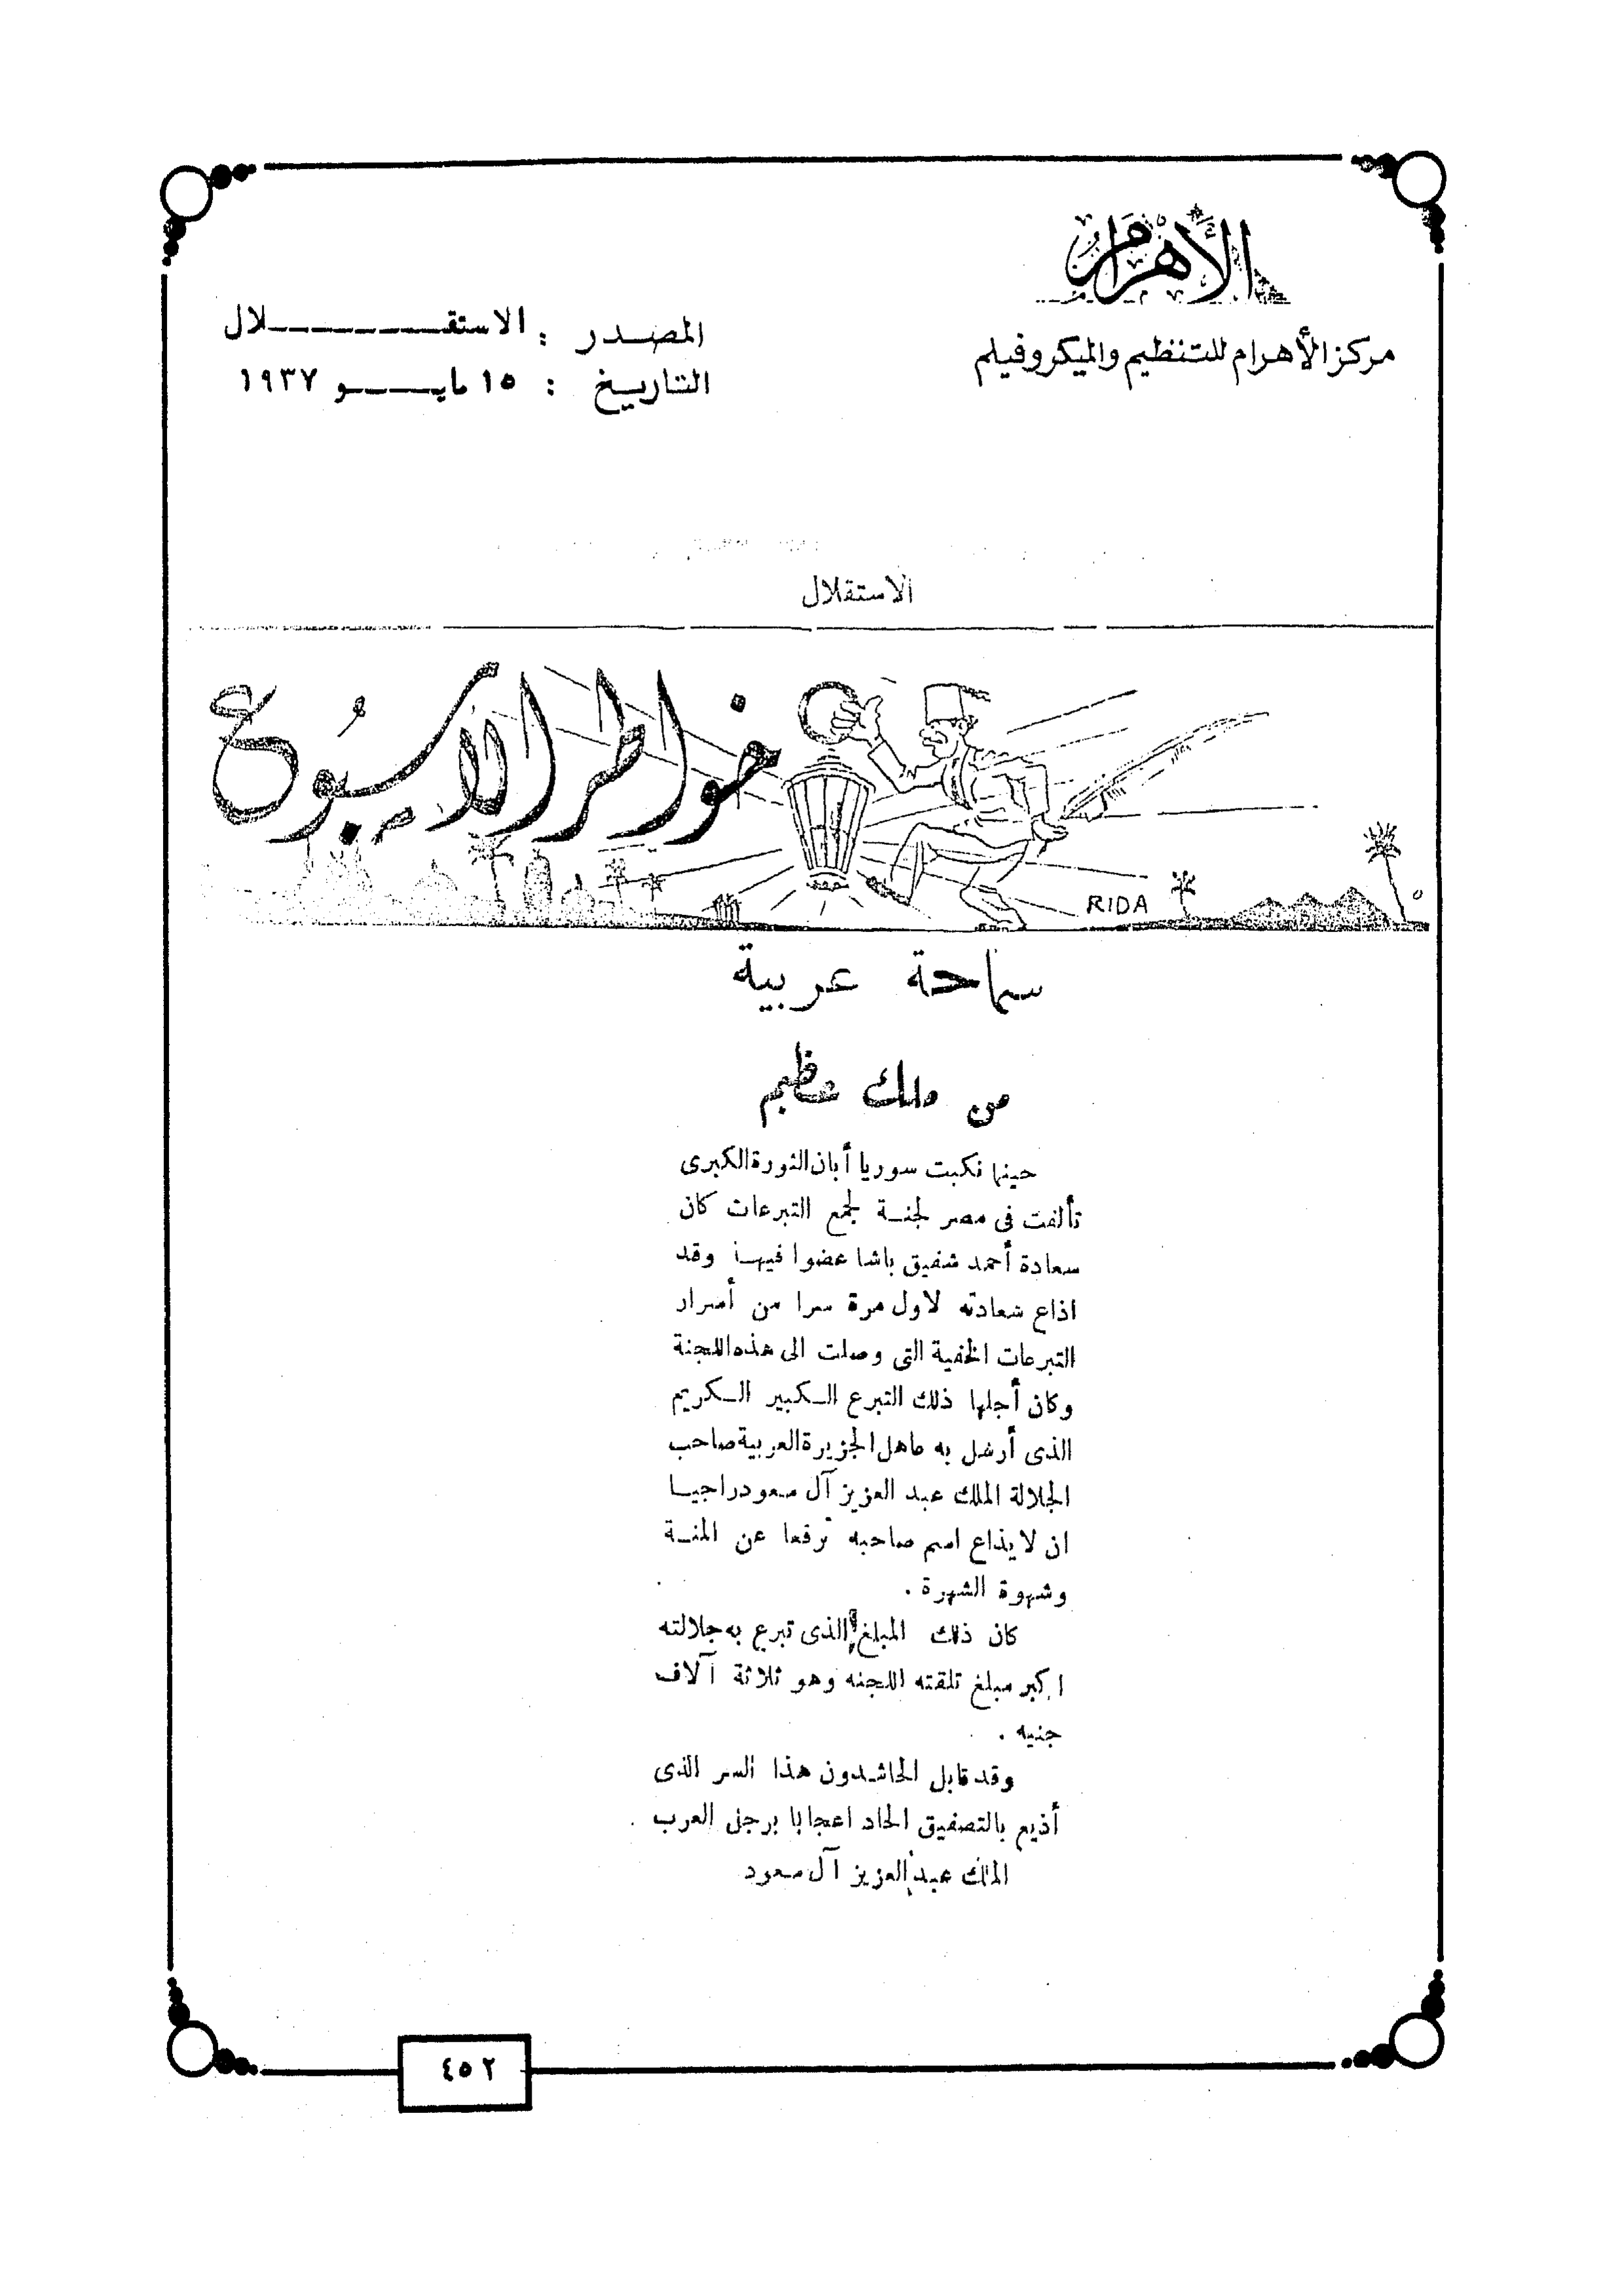 الأهرام
مركز الأهرام للتنظيم والميكروفيلم
المصدر : الاستقلال
التاريخ : ١٥ مايو ١٩٣٧
الاستقلال
خواطر الاسبوع
RIDA
سماحة عربية
من ملك عظيم
حينما نكبت سوريا أبان الثورة الكبرى
تألفت فى مصر لجنة لجمع التبرعات كان
سعادة أحمد شفيق باشا عضوا فيها وقد
اذاع سعادته لاول مرة سرا من أسرار
التبرعات الخفية التى وصلت الى هذه اللجنة
وكان أجلها ذلك التبرع الكبير الكريم
الذى أرسل به عاهل الجزيرة العربية صاحب
الجلالة الملك عبد العزيز آل سعود راجيا
ان لا يذاع اسم صاحبه ترفعا عن المنة
وشهوة الشهرة .
كان ذلك المبلغ الذى تبرع به جلالته
اكبر مبلغ تلقته اللجنه وهو ثلاثة آلاف
جنيه .
وقد قابل الحاشدون هذا السر الذى
أذيع بالتصفيق الحاد اعجابا برجل العرب
الملك عبد العزيز آل سعود
٤٥٢